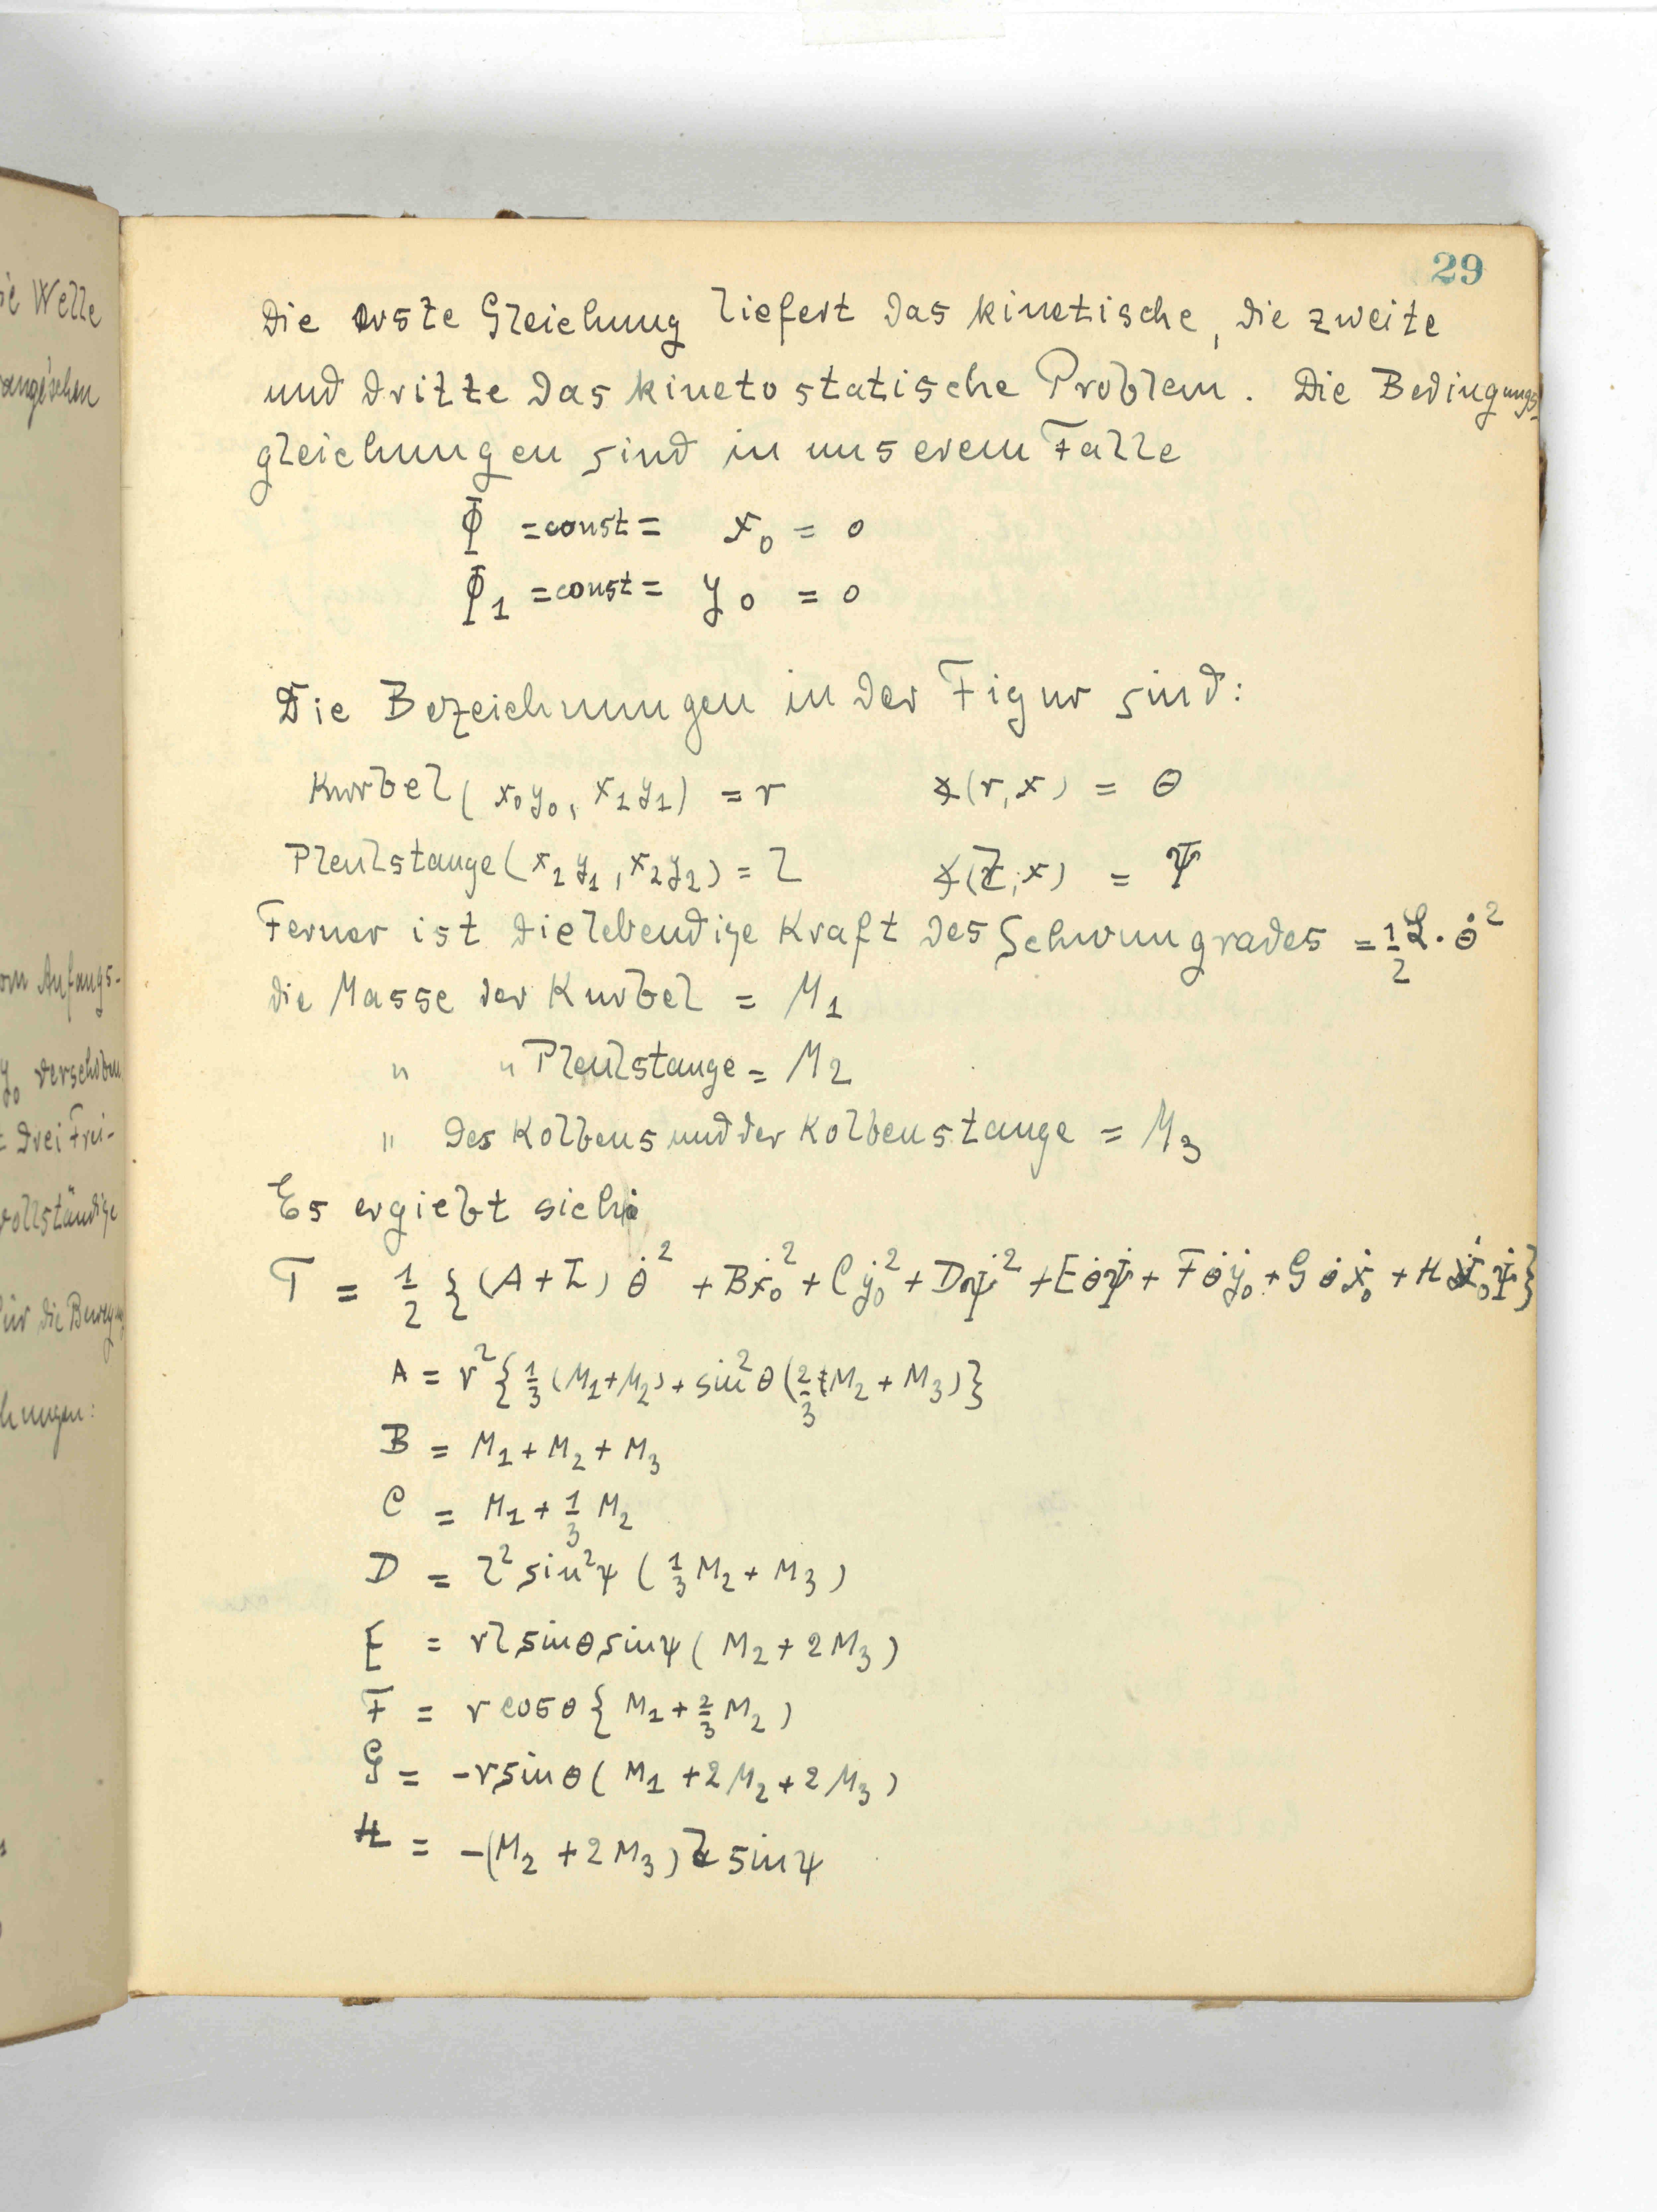 ie Welle
angesehen
om Anfangs-
y₀ verschoben
t drei Frei-
vollständige
für die Bewegung
hungen:
29
Die erste Gleichung liefert das kinetische, die zweite
und dritte das kinetostatische Problem. Die Bedingungs-
gleichungen sind in unserem Falle
Φ = const = x₀ = 0
Φ₁ = const = y₀ = 0
Die Bezeichnungen in der Figur sind:
Kurbel (x₀y₀, x₁y₁) = r ∢(r,x) = θ
Pleulstange (x₁y₁, x₂y₂) = l ∢(l,x) = Ψ
Ferner ist die lebendige Kraft des Schwungrades = 1/2 L · θ̇²
die Masse der Kurbel = M₁
" " Pleulstange = M₂
" des Kolbens und der Kolbenstange = M₃
Es ergiebt sich:
T = 1/2 {(A + L) θ̇² + Bẋ₀² + Cẏ₀² + Dψ̇² + Eθ̇ψ̇ + Fθ̇ẏ₀ + Gθ̇ẋ₀ + Hẋ₀ψ̇}
A = r² {1/3 (M₁ + M₂) + sin²θ (2/3 M₂ + M₃)}
B = M₁ + M₂ + M₃
C = M₁ + 1/3 M₂
D = l² sin²ψ (1/3 M₂ + M₃)
E = rl sinθ sinψ (M₂ + 2M₃)
F = r cosθ {M₁ + 2/3 M₂)
G = -r sinθ (M₁ + 2M₂ + 2M₃)
H = -(M₂ + 2M₃) l sinψ